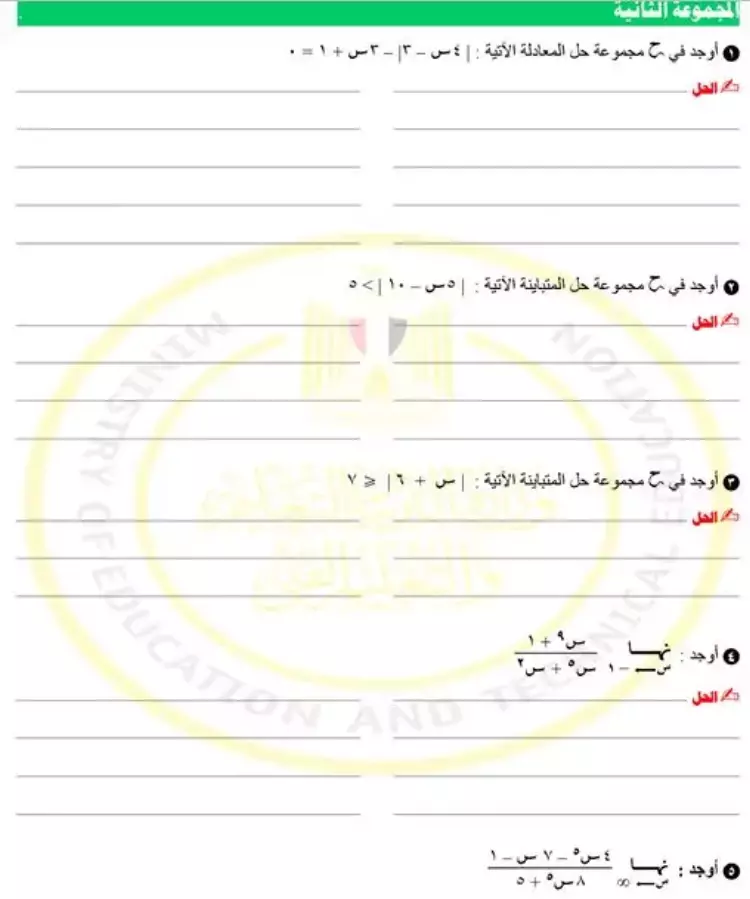 المجموعة الثانية
١ أوجد في ح مجموعة حل المعادلة الآتية : | ٤س – ٣| – ٣س + ١ = ٠
الحل
٢ أوجد في ح مجموعة حل المتباينة الآتية : | ٥س – ١٠ | > ٥
الحل
٣ أوجد في ح مجموعة حل المتباينة الآتية : | س + ٦ | ⩽ ٧
الحل
٤ أوجد : نهــا س ← –١ (س٩ + ١) / (س٥ + س٢)
الحل
٥ أوجد : نهــا س ← ∞ (٤س٥ – ٧ س – ١) / (٨س٥ + ٥)
MINISTRY OF EDUCATION AND TECHNICAL EDUCATION